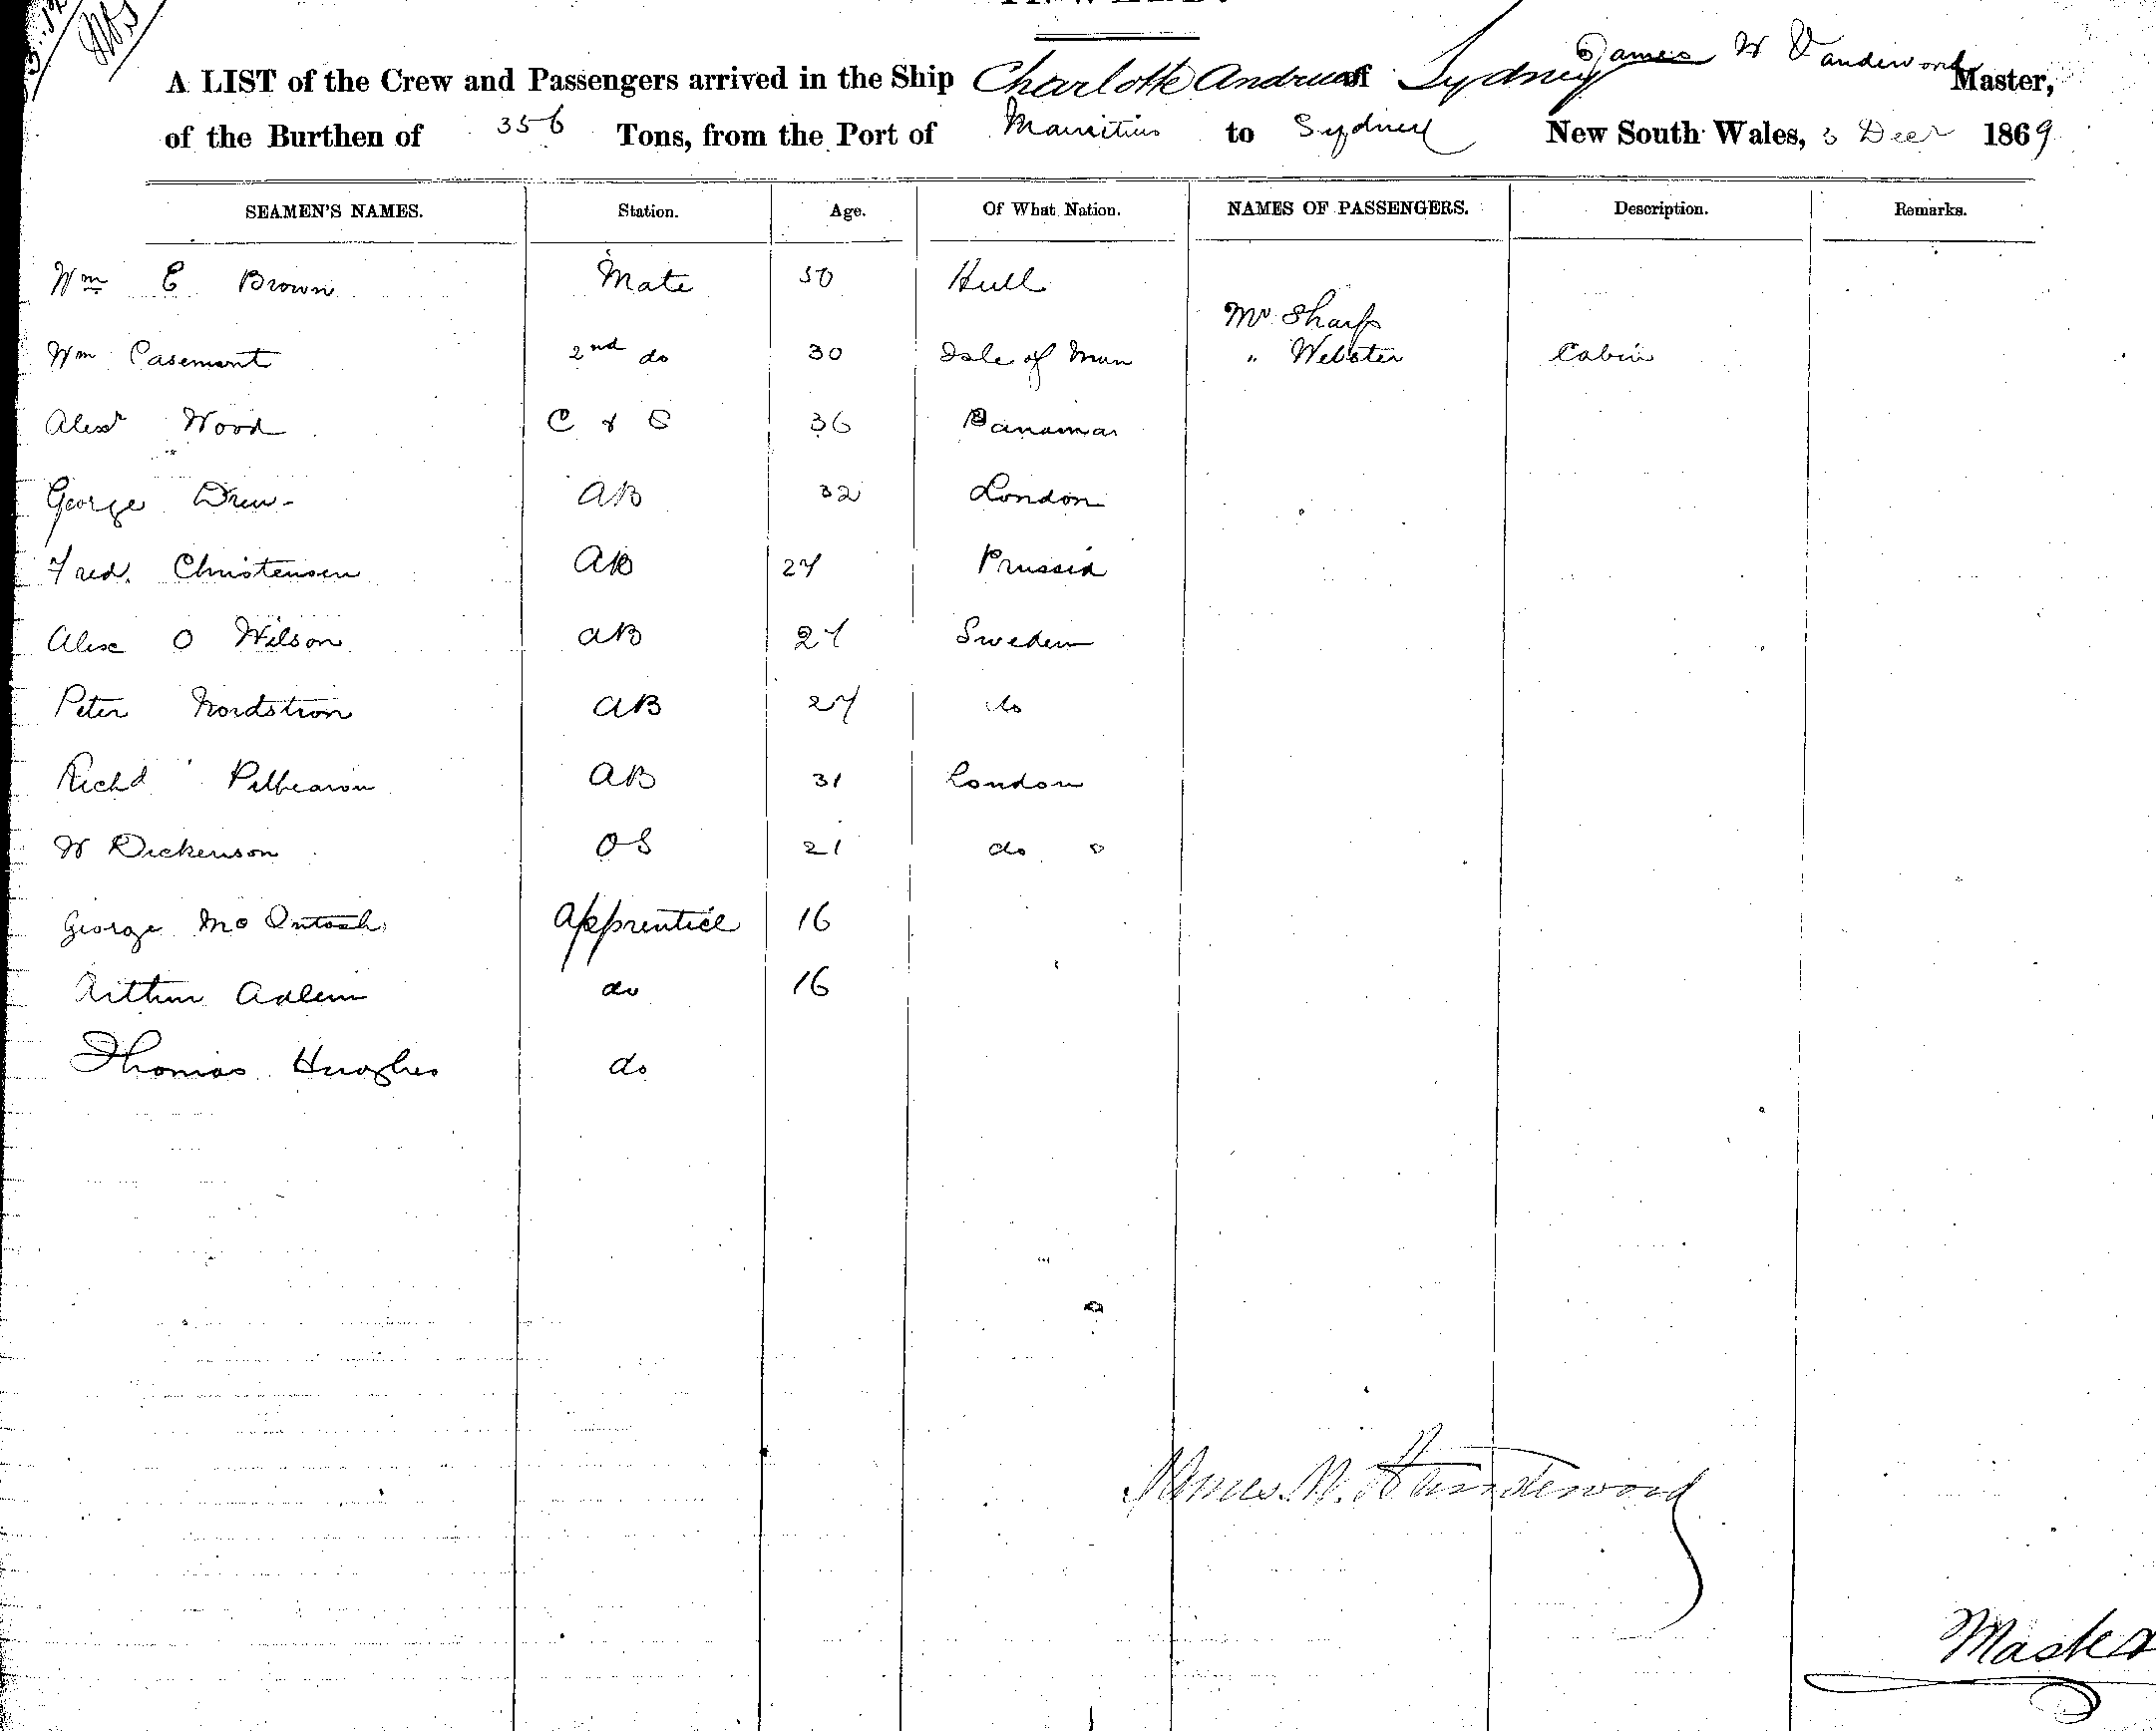 A LIST of the Crew and Passengers arrived in the Ship Charlotte Andrews of Sydney James W Vanderword Master,
of the Burthen of 356 Tons, from the Port of Mauritius to Sydney New South Wales, 3 Decr 1869
SEAMEN'S NAMES. Station. Age. Of What Nation. NAMES OF PASSENGERS. Description. Remarks.
Wm E Brown Mate 50 Hull
Mr Sharp
Wm Casement 2nd do 30 Isle of Man " Webster Cabin
Alexr Wood C & S 36 Panama
George Drew AB 32 London
Fred. Christensen AB 27 Prussia
Alex O Wilson AB 27 Sweden
Peter Nordstron AB 27 do
Richd AB 31 London
W Dickenson OS 21 do
George McIntosh Apprentice 16
Arthur do 16
Thomas Hughes do
James W.
Master